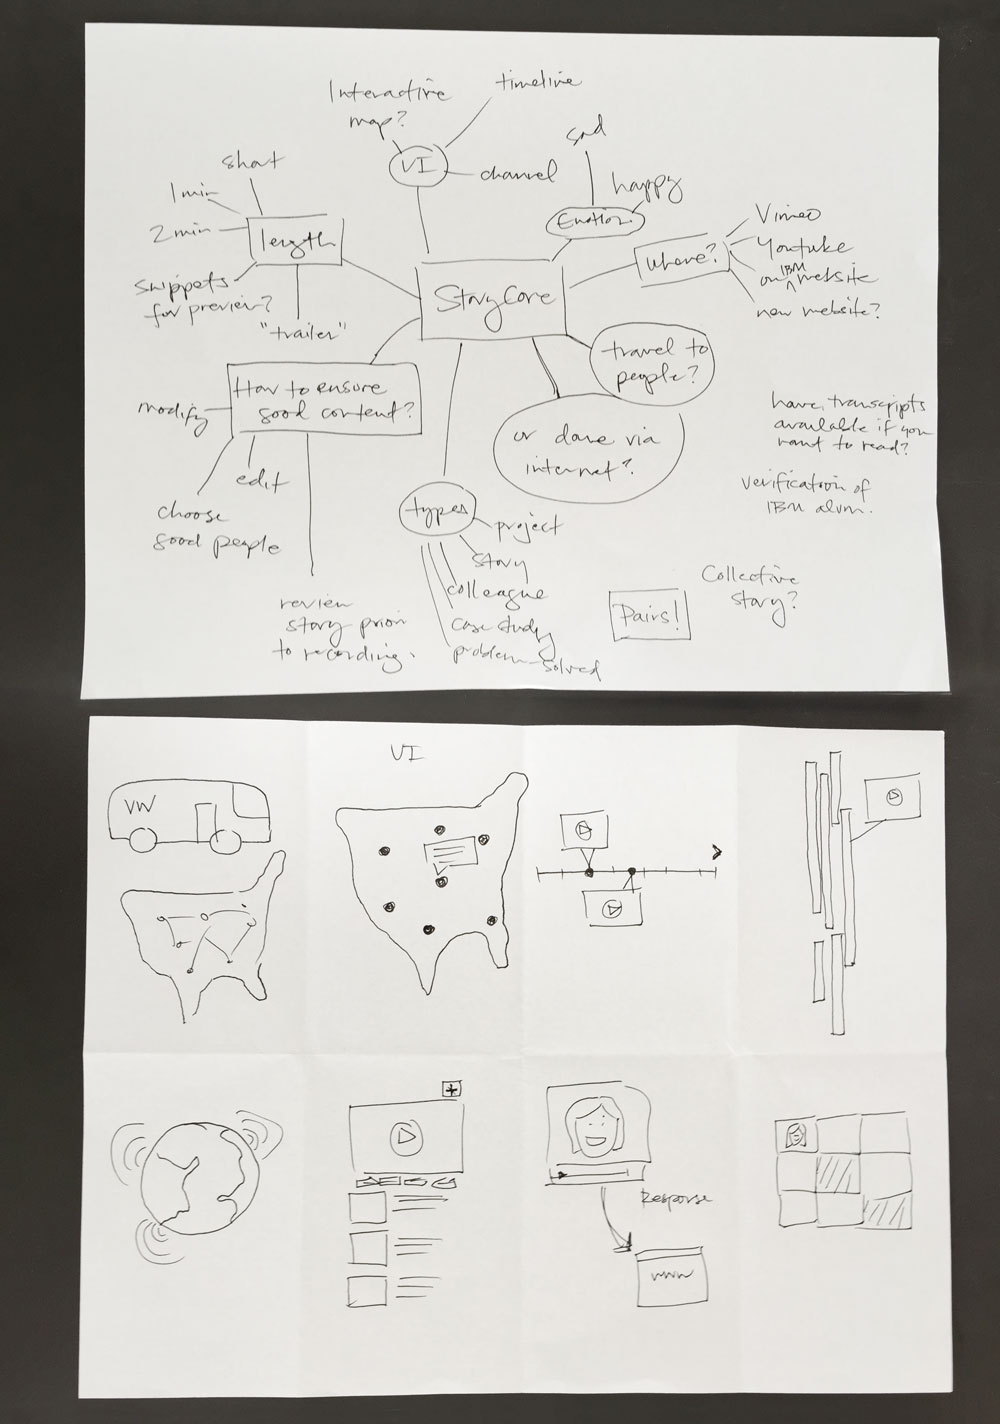 Interactive
map?
timeline
UI
channel
sad
happy
Emotion
short
1min
2min
length
snippets
for preview?
"trailer"
Where?
Vimeo
Youtube
on IBM website
new website?
StoryCore
travel to
people?
or done via
internet?
How to ensure
good content?
modify
edit
choose
good people
review
story prior
to recording.
types
project
story
colleague
case study
problem-solved
have transcripts
available if you
want to read?
verification of
IBM alum.
Collective
story?
Pairs!
UI
VW
Response
www